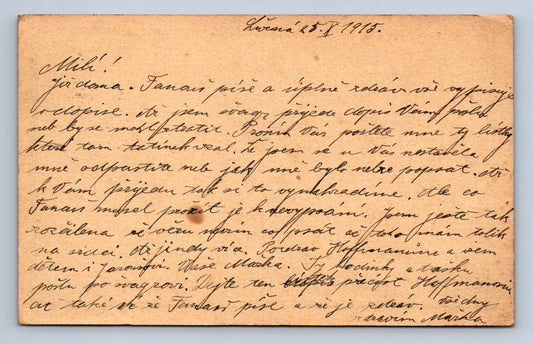 Lučná 25. X 1915.
Milí!
Již doma. Fanouš píše a úplně zdráv vše vypisuje
v dopise. Až sem švagr přijede dopis Vám pošlu
neb by se mohl ztratit. Prosím Vás pošlete mně ty lístky
které tam tatínek vzal. Že jsem se u Vás nestavěla
mně odpustíte neb jak mně bylo nelze popsat. Až
k Vám přijedu tak si to vynahradíme. Ale co
Fanouš musel prožít je k nevypsání. Jsem ještě tak
rozčilena že věru nevím co psát ač toho mám tolik
na srdci. Až jindy více. Pozdrav Hoffmanům a všem
dětem i Vaše Mařka. Ty hodinky a tašku
pošlu po švagrovi. Dejte ten přečíst Hoffmanovům
ať také ví že Fanouš píše a že je zdráv. vždy
zdravím Mařka